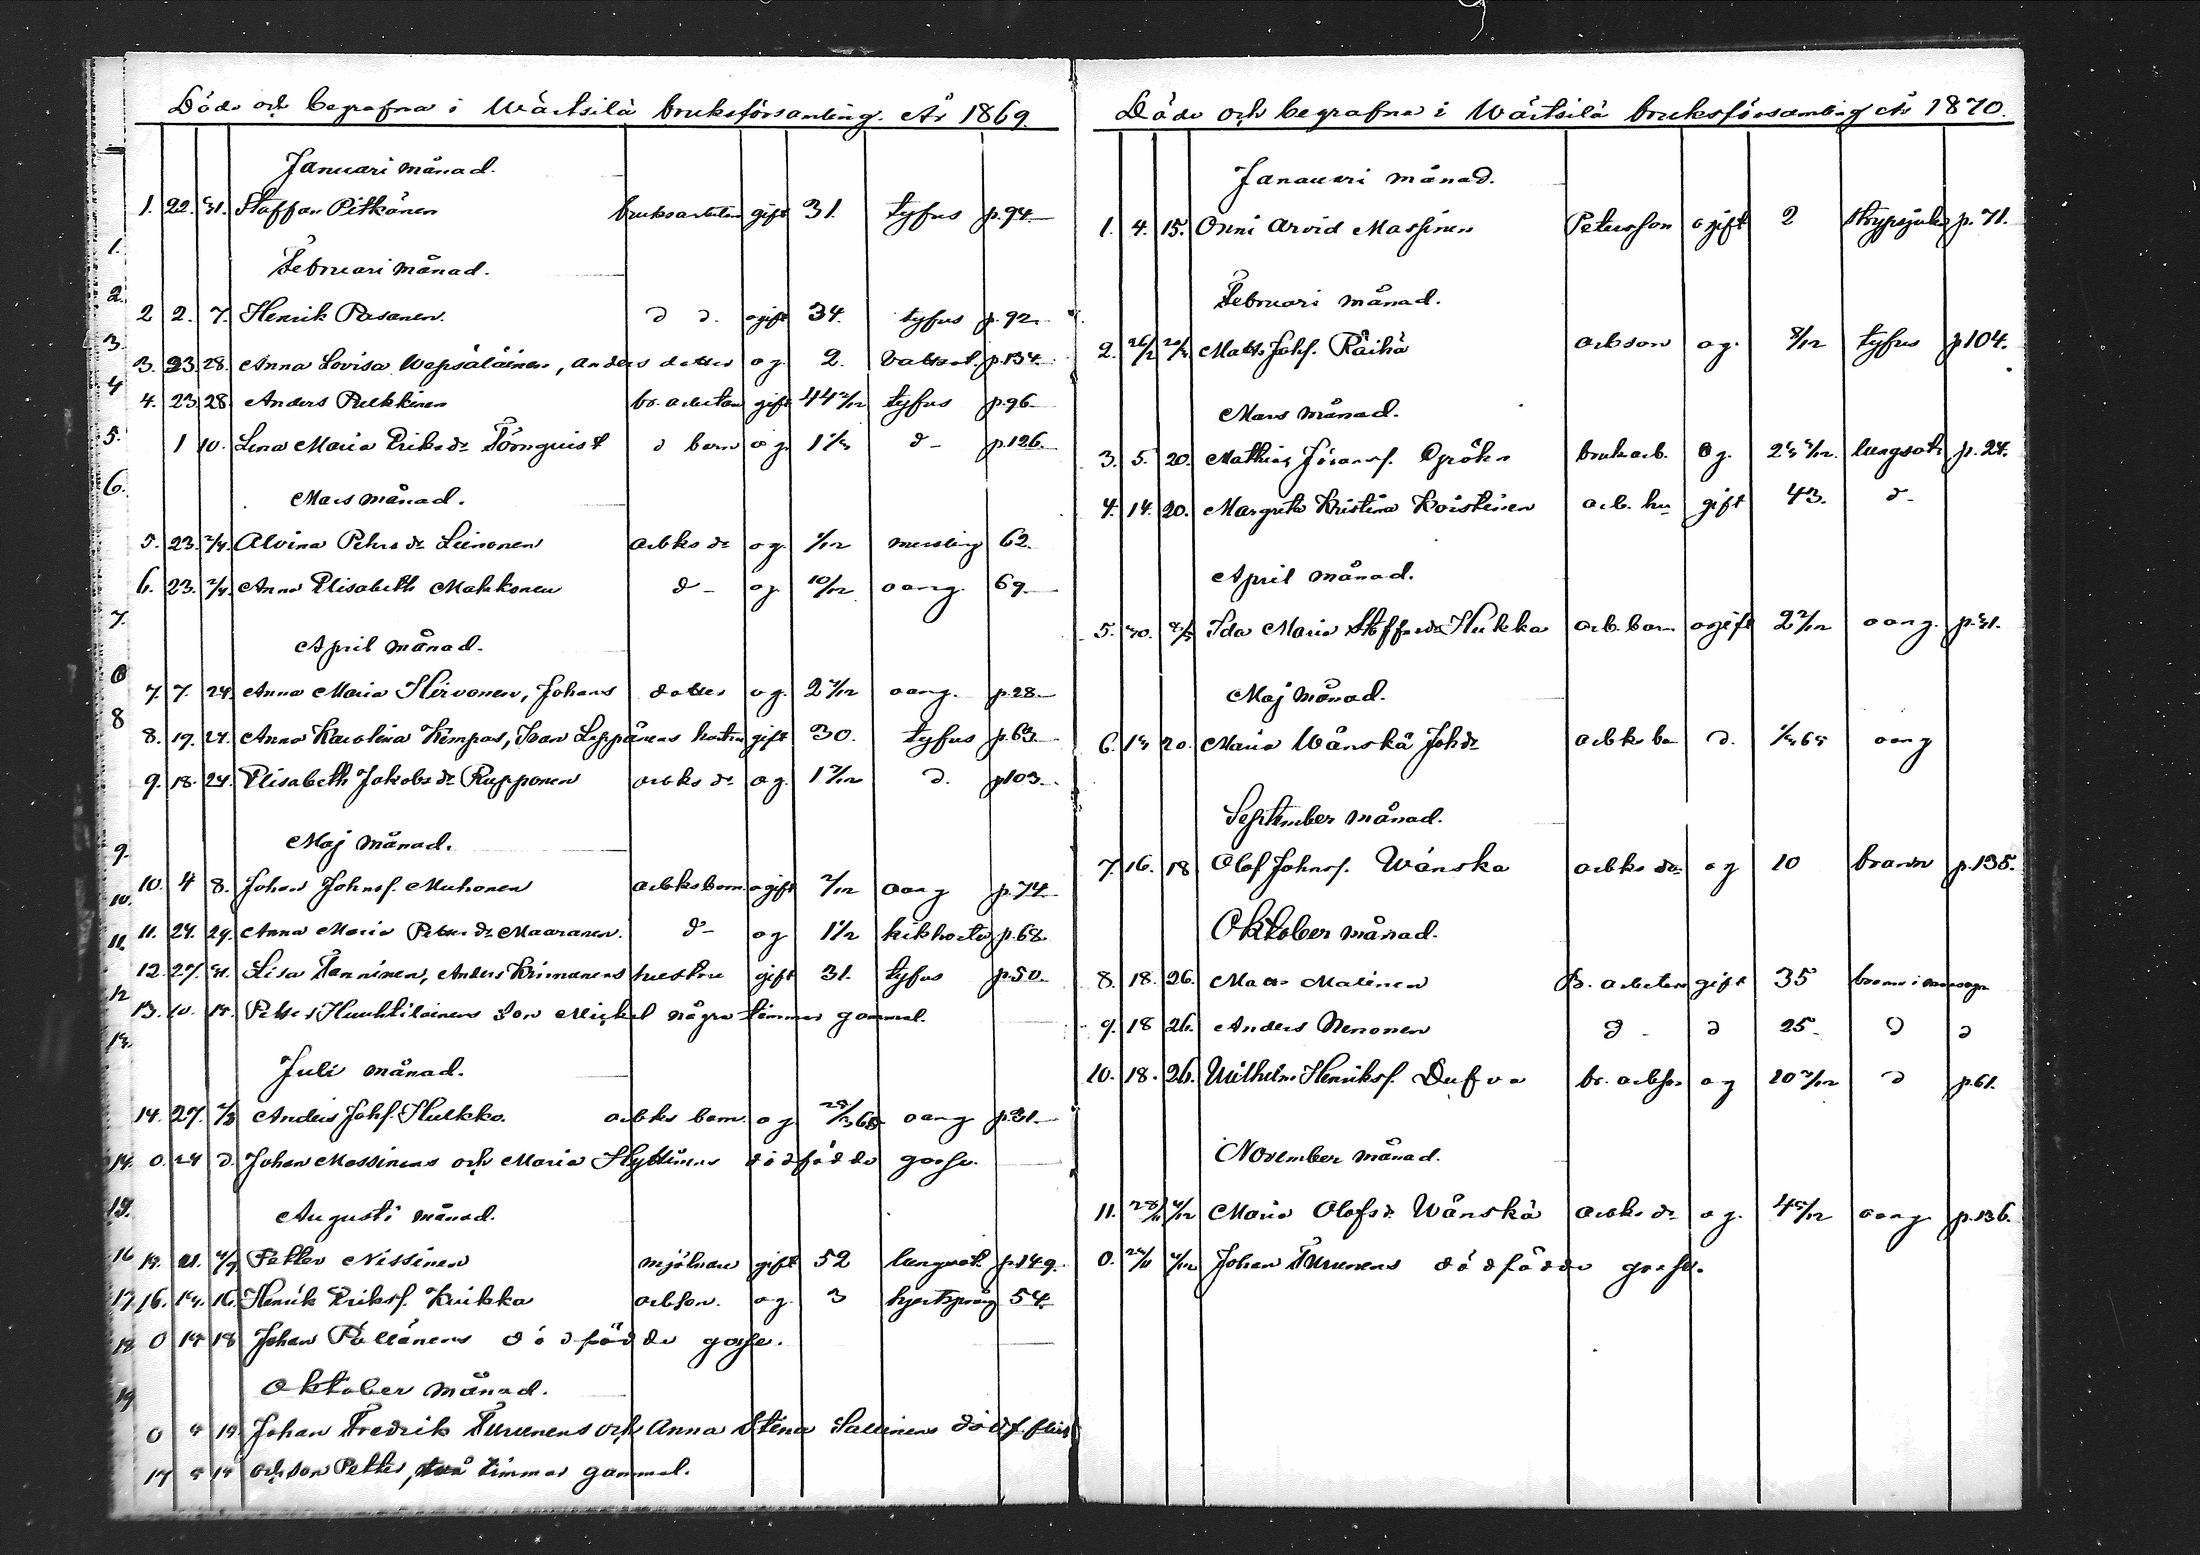 Döde och begrafna i Wärtsilä bruksförsamling. År 1869.
Januari månad.
1. 22. 31. Staffan Pitkänen bruksarbetare gift 31. tyfus p. 94.
Februari månad.
2 2. 7. Henrik Pasanen. d d. ogift 34. tyfus p. 92.
3. 23 28. Anna Lovisa Wepsäläinen, Anders dotter og 2. vattsot. p. 134.
4. 23 28 Anders Pulkkinen br. arbetare gift 44 2/12 tyfus p. 96.
1 10. Lena Maria Eriks dr Törnquist d barn og. 1 1/2 d - p. 126.
Mars månad.
5. 23. 2/4. Alvina Pehrs dr Leinonen arbks dr og. 1/12 messling 62.
6. 23. 2/4. Anna Elisabeth Makkonen d - og. 10/12 oang. 69.
April månad.
7. 7. 24. Anna Maria Hirvonen, Johans dotter og. 2 2/12 oang. p. 28.
8. 19. 24. Anna Karolina Kempas, Ivan Leppänens hustru gift 30. tyfus p. 63.
9. 18. 24. Elisabeth Jakobs dr Rupponen arbks dr og. 1 2/12 d. p 103.
Maj månad.
10. 4 8. Johan Johnsf. Muhonen arbksbarn ogift 2/12 oang p. 74.
11. 24. 29. Anna Maria Petter dr Maaranen. d - og 1 1/2 kikhosta p. 68.
12. 27. 31. Lisa Tanninen, Anders Krimanens hustru gift 31. tyfus p. 50.
13. 10. 15. Petter Huuhtilainens son Mickel några timmar gammal.
Juli månad.
14. 27. 1/8 Anders Johf. Hukka. arbks barn. og 28/3 68 oang p. 31.
0. 24 d. Johan Massinens och Maria Hyttinens dödfödde gosse.
Augusti månad.
21. 4/9 Petter Nissinen mjölnare gift 52 lungsot. p. 149.
16. 14. 16. Henrik Eriksf. Kukka arbson. og. 3 hjertspång 54.
0 14 18 Johan Pöllänens dödfödde gosse.
Oktober månad.
0 4 19. Johan Fredrik Turunens och Anna Stina Salminens dödf. flick
och son Petter, två timmar gammal.
Döde och begrafna i Wärtsilä bruksförsamling år 1870.
Janauari månad.
1. 4. 15. Onni Arvid Massinen Petersson ogift 2 strypsjuka p. 71.
Februari månad.
2. 26/2 Matts Johf. Räihä arbson og. 8/12 tyfus p 104.
Mars månad.
3. 5. 20. Mathias Göransf. Gröhn brukarb. og. 23 3/12. lungsot p. 24.
4. 14. 20. Margreta Kristina Koistinen arb. hu gift 43. d -
April månad.
5. 30. 8/5 Ida Maria Staffans dr Hukka arb. barn ogift 2 2/12 oang. p. 31.
Maj månad.
6. 13 20. Maria Wänskä Joh dr arbks ba d. oang
September månad.
7. 16. 18 Olof Johnsf. Wänska arbks og 10 brann p. 135.
Oktober månad.
8. 18. 26. Matts Malinen B. arbetare gift 35
9. 18 26. Anders Nenonen d - d 25 - d d
10. 18. 26. Wilhelm Henriksf. Dufva br. arbson og 20 2/12 d p. 61.
November månad.
11. 28/11 4/12 Maria Olofs dr Wänskä arbks dr og. 4 5/12 oang p. 136.
0. 24/11 4/12 Johan Turunens dödfödde gosse.